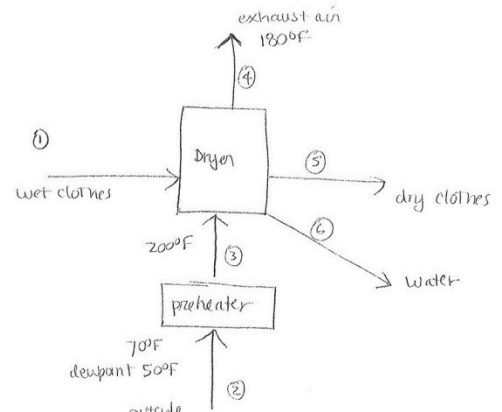 exhaust air
180°F
④
①
Dryer
⑤
wet clothes
dry clothes
200°F
③
⑥
water
preheater
70°F
dewpant 50°F
②
outside